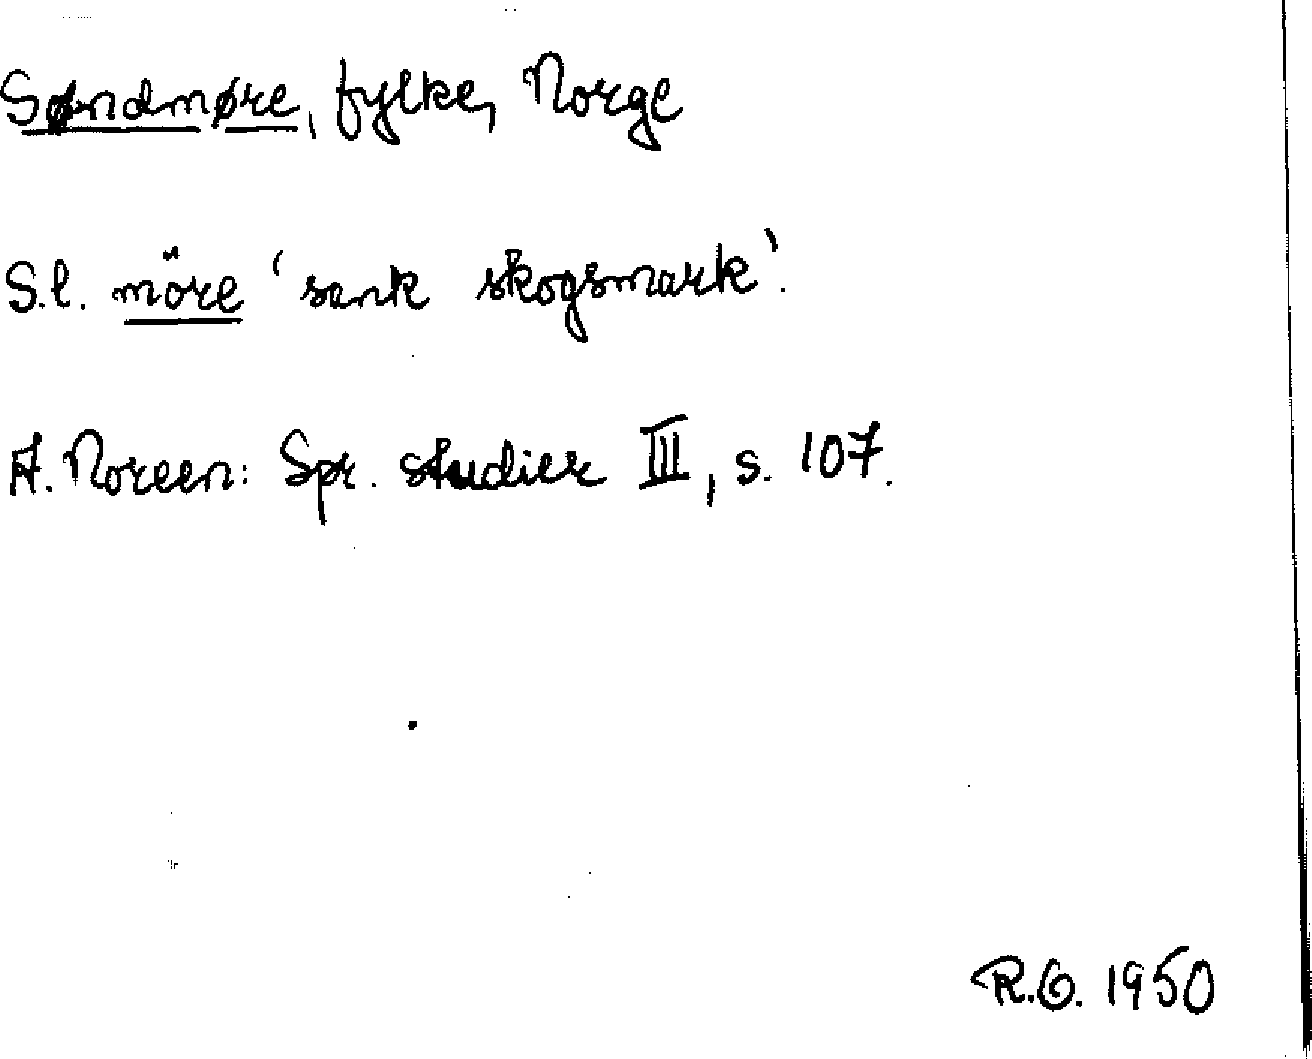 Søndmøre, fylke, Norge
S.l. möre 'sank skogsmark'.
A. Noreen: Spr. studier III, s. 107.
R.O. 1950